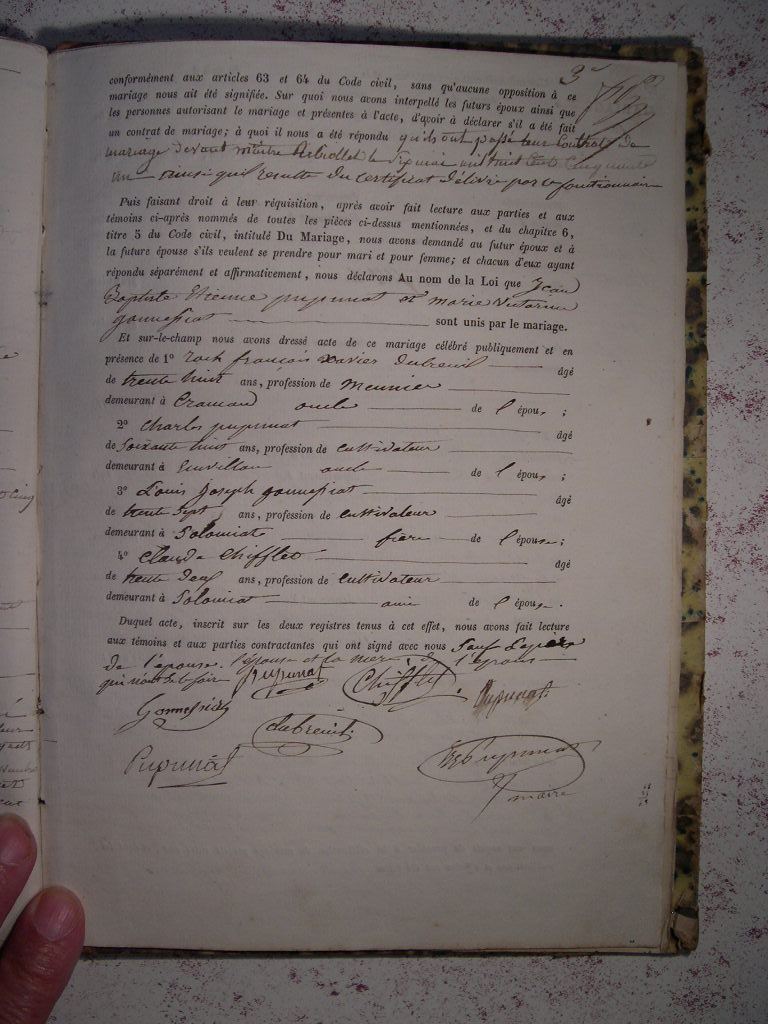 3
conformément aux articles 63 et 64 du Code civil, sans qu'aucune opposition à ce
mariage nous ait été signifiée. Sur quoi nous avons interpellé les futurs époux ainsi que
les personnes autorisant le mariage et présentes à l'acte, d'avoir à déclarer s'il a été fait
un contrat de mariage; à quoi il nous a été répondu qu'ils ont passé leur Contrat de
mariage devant maitre le dix mai mil huit Cent Cinquante
un ainsi qu'il resulte du certificat délivré par ce fonctionnaire
Puis faisant droit à leur réquisition, après avoir fait lecture aux parties et aux
témoins ci-après nommés de toutes les pièces ci-dessus mentionnées, et du chapitre 6,
titre 5 du Code civil, intitulé Du Mariage, nous avons demandé au futur époux et à
la future épouse s'ils veulent se prendre pour mari et pour femme; et chacun d'eux ayant
répondu séparément et affirmativement, nous déclarons Au nom de la Loi que Jean
Baptiste Etienne pupunat et marie Victorine
gonnessiat sont unis par le mariage.
Et sur-le-champ nous avons dressé acte de ce mariage célébré publiquement et en
présence de 1° rock françois xavier dubreuil âgé
de trente huit ans, profession de meunier
demeurant à Cramans oncle de l'époux ;
2° Charles pupunat âgé
de soixante huit ans, profession de cultivateur
demeurant à oncle de l'époux ;
3° Louis Joseph gonnessiat âgé
de trente sept ans, profession de cultivateur
demeurant à Solomiat frère de l'épouse ;
4° Claude Chifflet âgé
de trente deux ans, profession de cultivateur
demeurant à Solomiat ami de l'épouse .
Duquel acte, inscrit sur les deux registres tenus à cet effet, nous avons fait lecture
aux témoins et aux parties contractantes qui ont signé avec nous sauf le père
de l'épouse. l'épouse et la mère de l'époux
qui n'ont su le faire Pupunat Chifflet Pupunat
Gonnessiat dubreuil
Pupunat Pupunat
maire